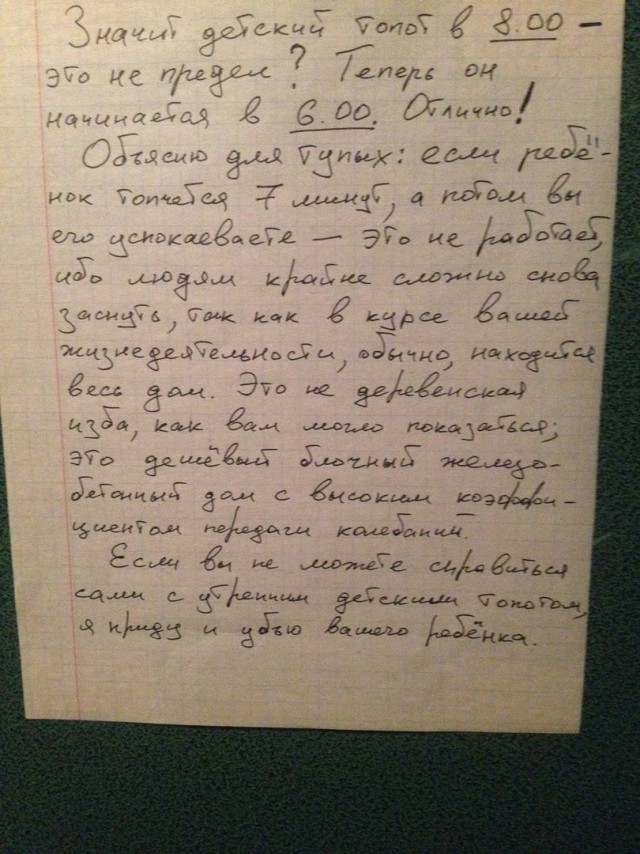 Значит детский топот в 8.00 –
это не предел? Теперь он
начинается в 6.00. Отлично!
Объясню для тупых: если ребё-
нок топчется 7 минут, а потом вы
его успокаеваете – это не работает,
ибо людям крайне сложно снова
заснуть, так как в курсе вашей
жизнедеятельности, обычно, находится
весь дом. Это не деревенская
изба, как вам могло показаться;
это дешёвый блочный железо-
бетонный дом с высоким коэффи-
циентом передачи колебаний.
Если вы не можете справиться
сами с утренним детским топотом,
я приду и убью вашего ребёнка.